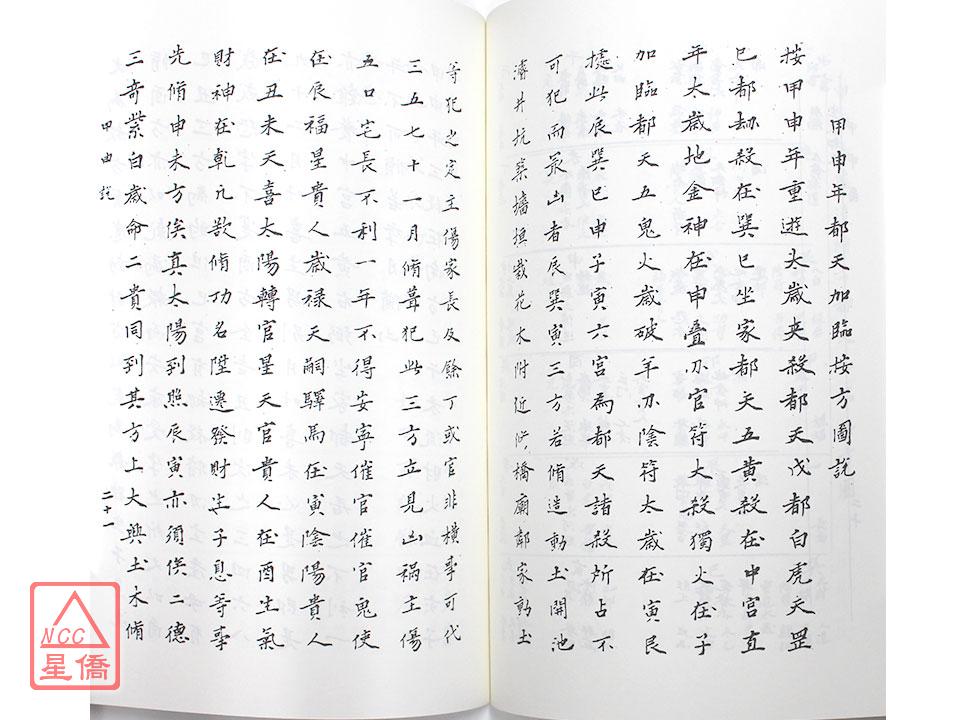 甲申年都天加臨按方圖說
按甲申年重遊太歲夾殺都天戊都白虎天罡
巳都劫殺在巽巳坐家都天五黃殺在中宮直
年太歲地金神在申疊刃官符大殺獨火在子
加臨都天五鬼火歲破羊刃陰符太歲在寅艮
據此辰巽巳申子寅六宮為都天諸殺所占不
可犯而最凶者辰巽寅三方若脩造動土開池
濬井坑築墻垣栽花木附近修橋廟鄰家動土
等犯之定主傷家長及餘丁或官非橫事可代
三五七十一月脩葺犯此三方立見凶禍主傷
五口宅長不利一年不得安寧催官催官鬼使
在辰福星貴人歲祿天嗣驛馬在寅陰陽貴人
在丑未天喜太陽轉官星天官貴人在酉生氣
財神在乾凡欲脩功名陞遷發財生子息等事
先脩申未方俟真太陽到照辰寅亦須俟二德
三奇紫白歲命二貴同到其方上大興土木脩
二十一
NCC
星僑